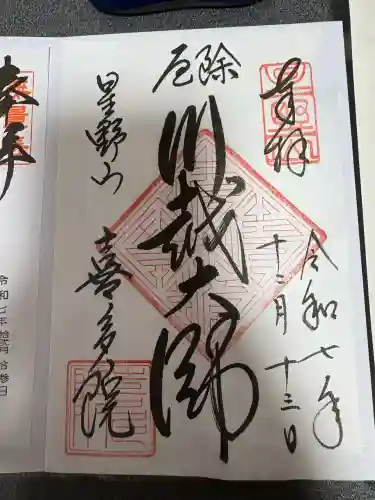 奉拝
令和七年
十二月十三日
厄除
川越大師
星野山
喜多院
奉拝
令和七年拾弐月拾参日